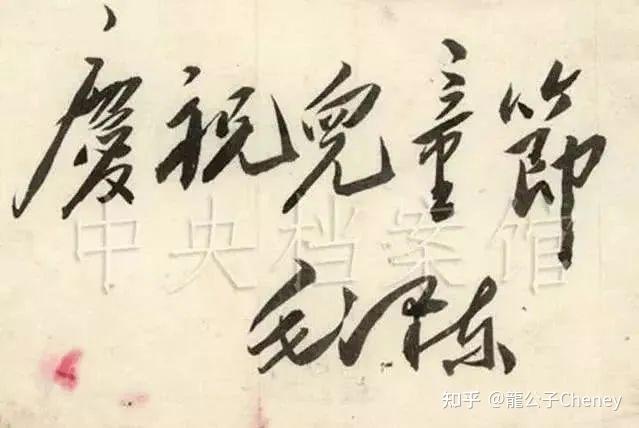 慶祝兒童節
中央档案馆
毛泽东
知乎 @龍公子Cheney